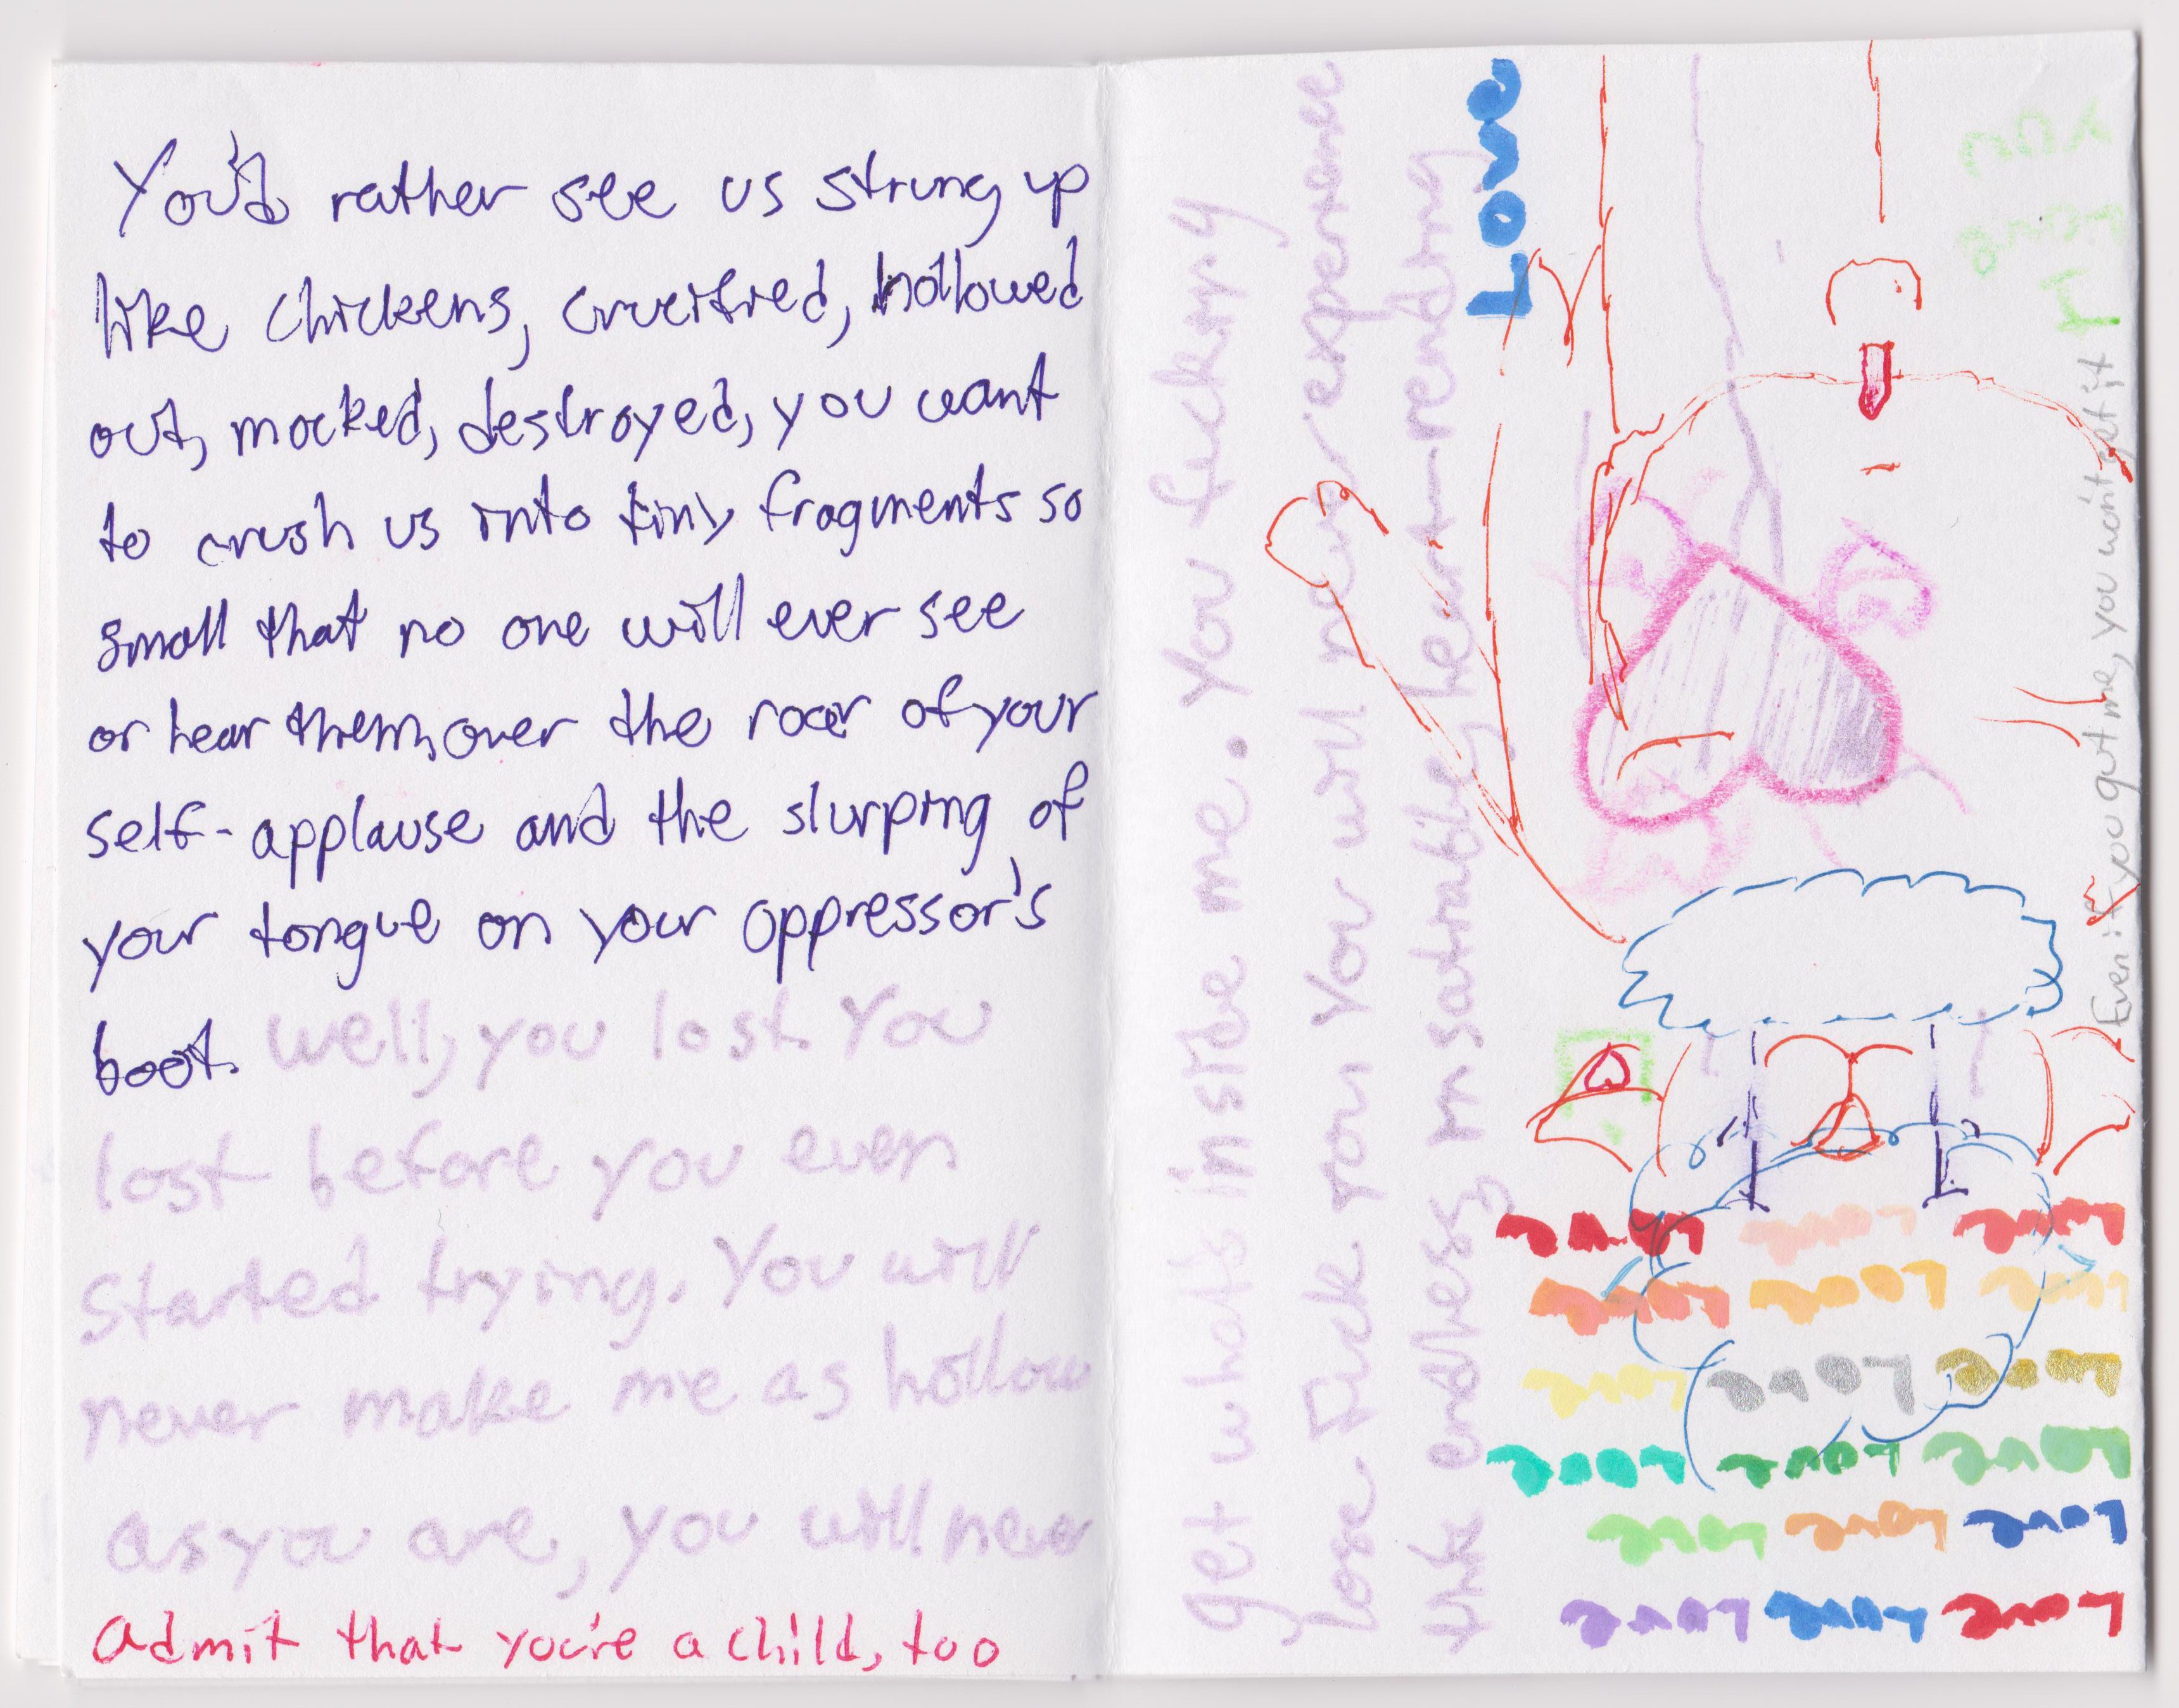 You'd rather see us strung up
like chickens, crucified, hollowed
out, mocked, destroyed, you want
to crush us into tiny fragments so
small that no one will ever see
or hear them, over the roar of your
self-applause and the slurping of
your tongue on your oppressor's
boot. well, you lost. You
lost before you even
started trying. You will
never make me as hollow
as you are, you will never
Admit that you're a child, too
get what's inside me. You fucking
lose. Fuck you. You will never experience
this endless, insatiably heart-rending
Love
Even if you gut me, you won't get it
Love Love Love
Love Love Love
Love Love Love
Love Love Love
Love Love Love
Love Love Love